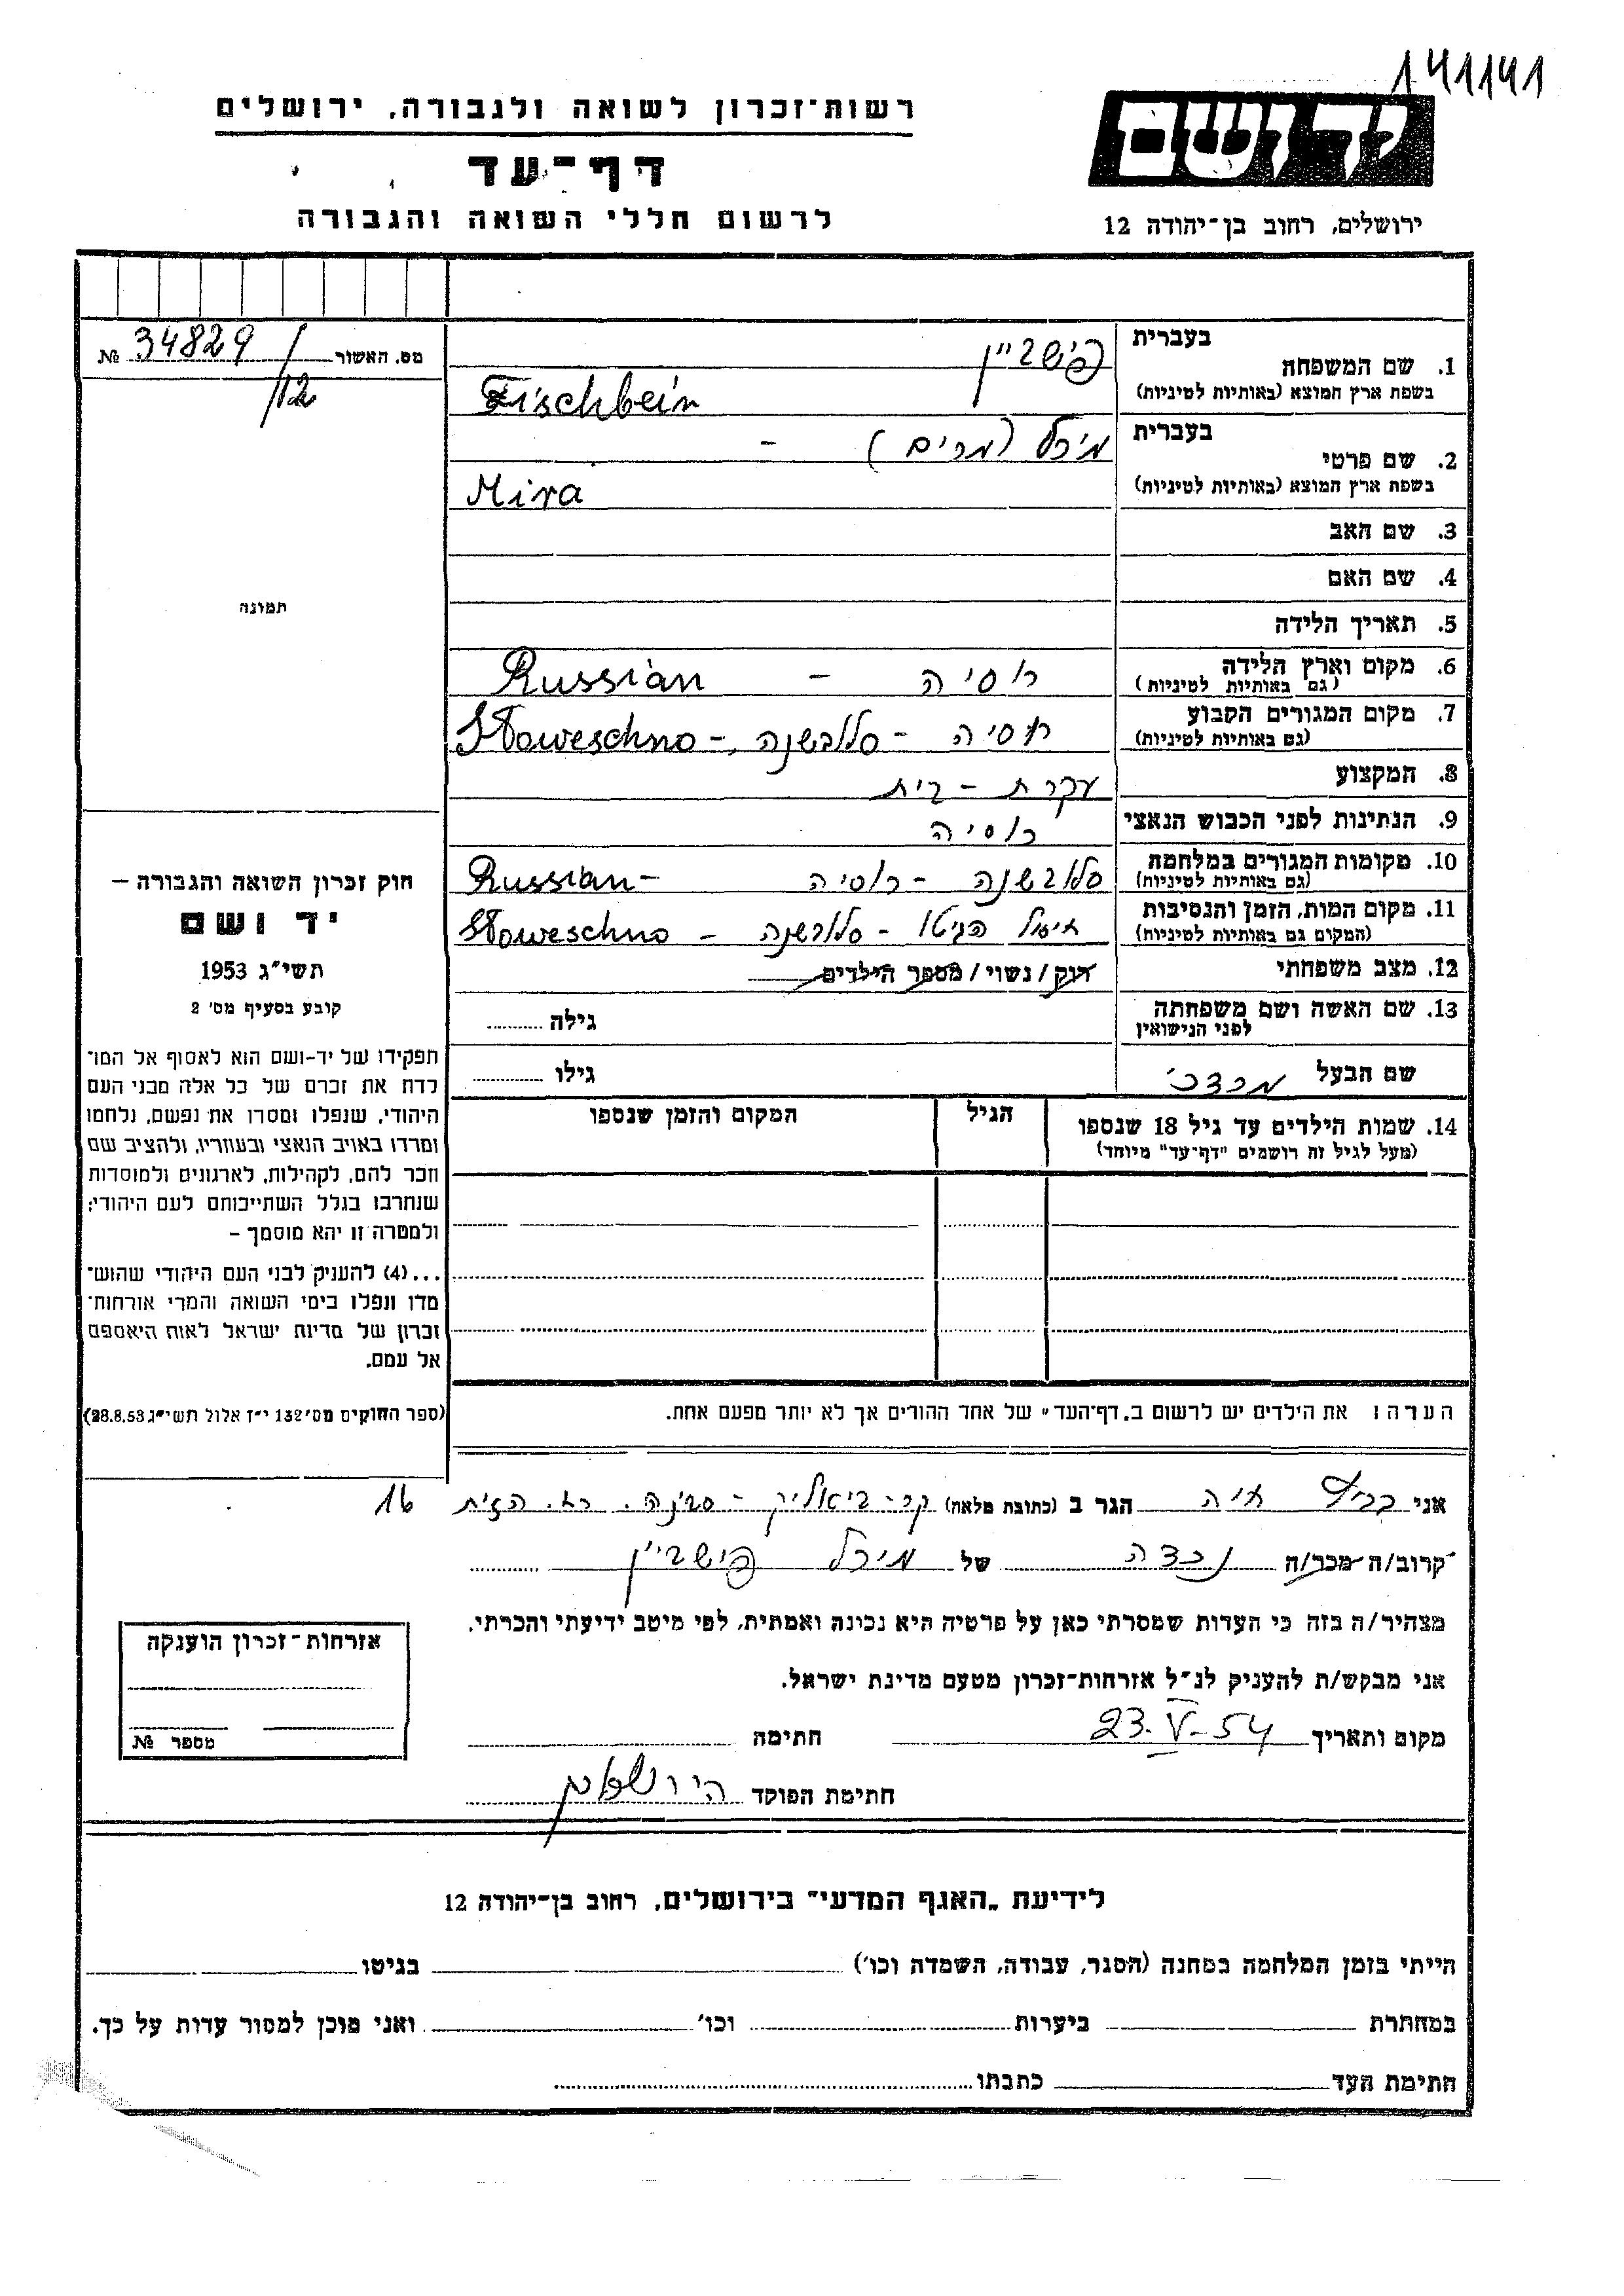 141141
רשות־זכרון לשואה ולגבורה, ירושלים
דף־עד
לרשום חללי השואה והגבורה
יד ושם
ירושלים, רחוב בן־יהודה 12
מס. האשור 34829 №
/12
בעברית
1. שם המשפחה פישביין
בשפת ארץ המוצא (באותיות לטיניות) Fischbein
בעברית
2. שם פרטי מיכל (מרים) –
בשפת ארץ המוצא (באותיות לטיניות) Mira
3. שם האב
4. שם האם
5. תאריך הלידה
6. מקום וארץ הלידה רוסיה – Russian
(גם באותיות לטיניות)
7. מקום המגורים הקבוע רוסיה – סלובשנה – Sloweschno
(גם באותיות לטיניות)
8. המקצוע עקרת – בית
9. הנתינות לפני הכבוש הנאצי רוסיה
10. מקומות המגורים במלחמה סלובשנה – רוסיה Russian –
(גם באותיות לטיניות)
11. מקום המות, הזמן והנסיבות חיסול הגיטו – סלובשנה – Sloweschno
(המקום גם באותיות לטיניות)
12. מצב משפחתי רוק/נשוי/מספר הילדים
13. שם האשה ושם משפחתה
לפני הנישואין
גילה
שם הבעל מרדכי
גילו
14. שמות הילדים עד גיל 18 שנספו
(מעל לגיל זה רושמים "דף־עד" מיוחד)
הגיל
המקום והזמן שנספו
תמונה
חוק זכרון השואה והגבורה –
יד ושם
תשי״ג 1953
קובע בסעיף מס׳ 2
תפקידו של יד־ושם הוא לאסוף אל המו־
לדת את זכרם של כל אלה מבני העם
היהודי, שנפלו ומסרו את נפשם, נלחמו
ומרדו באויב הנאצי ובעוזריו, ולהציב שם
וזכר להם, לקהילות, לארגונים ולמוסדות
שנחרבו בגלל השתייכותם לעם היהודי;
ולמטרה זו יהא מוסמך –
...(4) להעניק לבני העם היהודי שהוש־
מדו ונפלו בימי השואה והמרי אזרחות־
זכרון של מדינת ישראל לאות היאספם
אל עמם.
(ספר החוקים מס׳ 132 י״ז אלול תשי״ג 28.8.53)
הערה: את הילדים יש לרשום ב„דף־העד" של אחד ההורים אך לא יותר מפעם אחת.
אני חיה הגר ב (כתובת מלאה) קר – ביאליק – הזית 16
קרוב/ה מכר/ה נכדה של מיכל פישביין
מצהיר/ה בזה כי העדות שמסרתי כאן על פרטיה היא נכונה ואמתית, לפי מיטב ידיעתי והכרתי.
אני מבקש/ת להעניק לנ״ל אזרחות־זכרון מטעם מדינת ישראל.
מקום ותאריך 23.V-54 חתימה
חתימת הפוקד
אזרחות־זכרון הוענקה
מספר №
לידיעת „האגף המדעי" בירושלים, רחוב בן־יהודה 12
הייתי בזמן המלחמה במחנה (הסגר, עבודה, השמדה וכו׳) בגיטו
במחתרת ביערות וכו׳ ואני מוכן למסור עדות על כך.
חתימת העד כתבתו